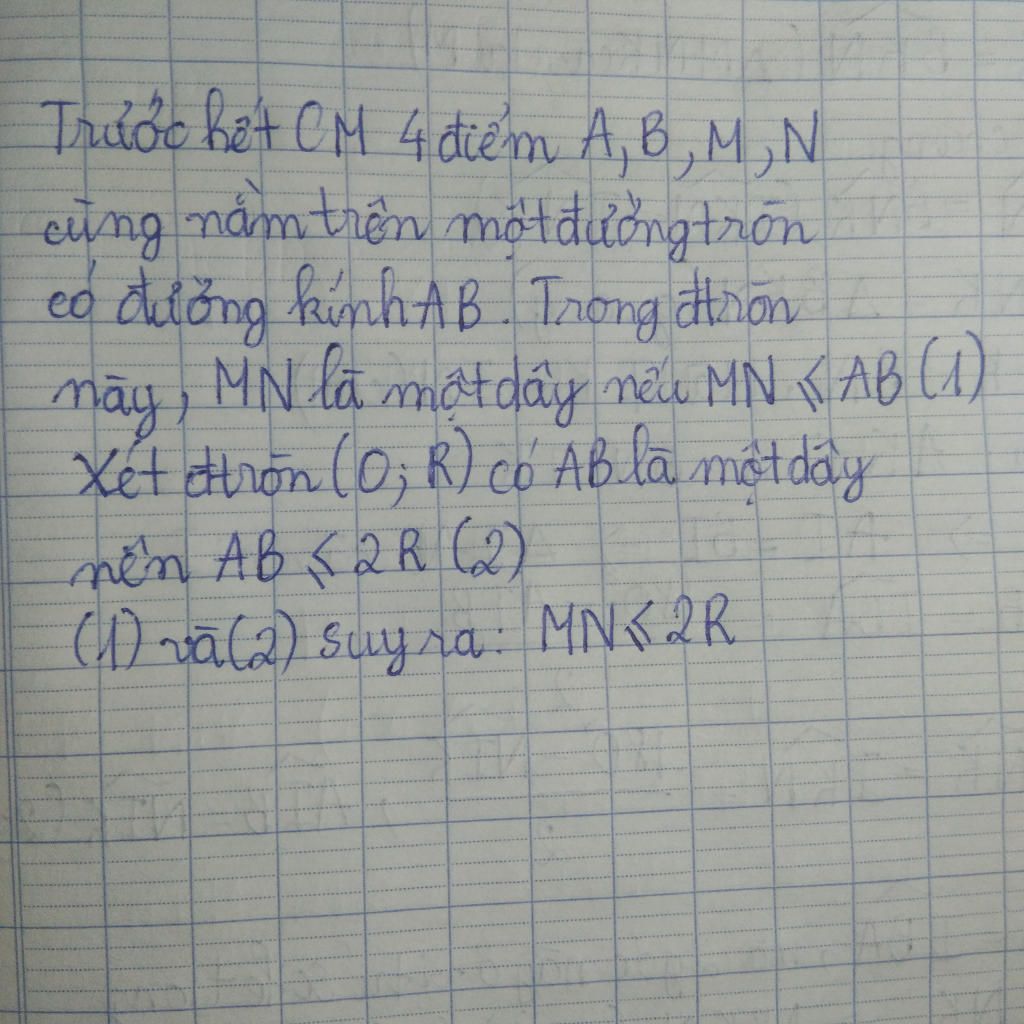 Trước hết CM 4 điểm A, B, M, N
cùng nằm trên một đường tròn
có đường kính AB. Trong đtròn
này, MN là một dây nếu MN ⩽ AB (1)
Xét đtròn (O; R) có AB là một dây
nên AB ⩽ 2R (2)
(1) và (2) suy ra: MN ⩽ 2R